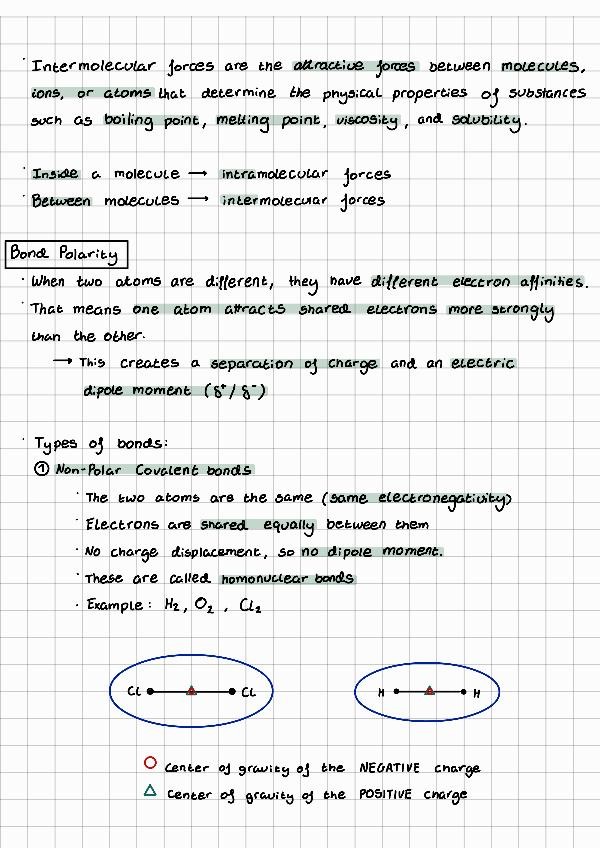 · Intermolecular forces are the attractive forces between molecules,
ions, or atoms that determine the physical properties of substances
such as boiling point, melting point, viscosity, and solubility.
· Inside a molecule → intramolecular forces
· Between molecules → intermolecular forces
Bond Polarity
· When two atoms are different, they have different electron affinities.
· That means one atom attracts shared electrons more strongly
than the other.
→ This creates a separation of charge and an electric
dipole moment (δ⁺/δ⁻)
· Types of bonds:
① Non-Polar Covalent bonds
· The two atoms are the same (same electronegativity)
· Electrons are shared equally between them
· No charge displacement, so no dipole moment.
· These are called homonuclear bonds
· Example: H₂, O₂, Cl₂
Cl Cl H H
Center of gravity of the NEGATIVE charge
Center of gravity of the POSITIVE charge